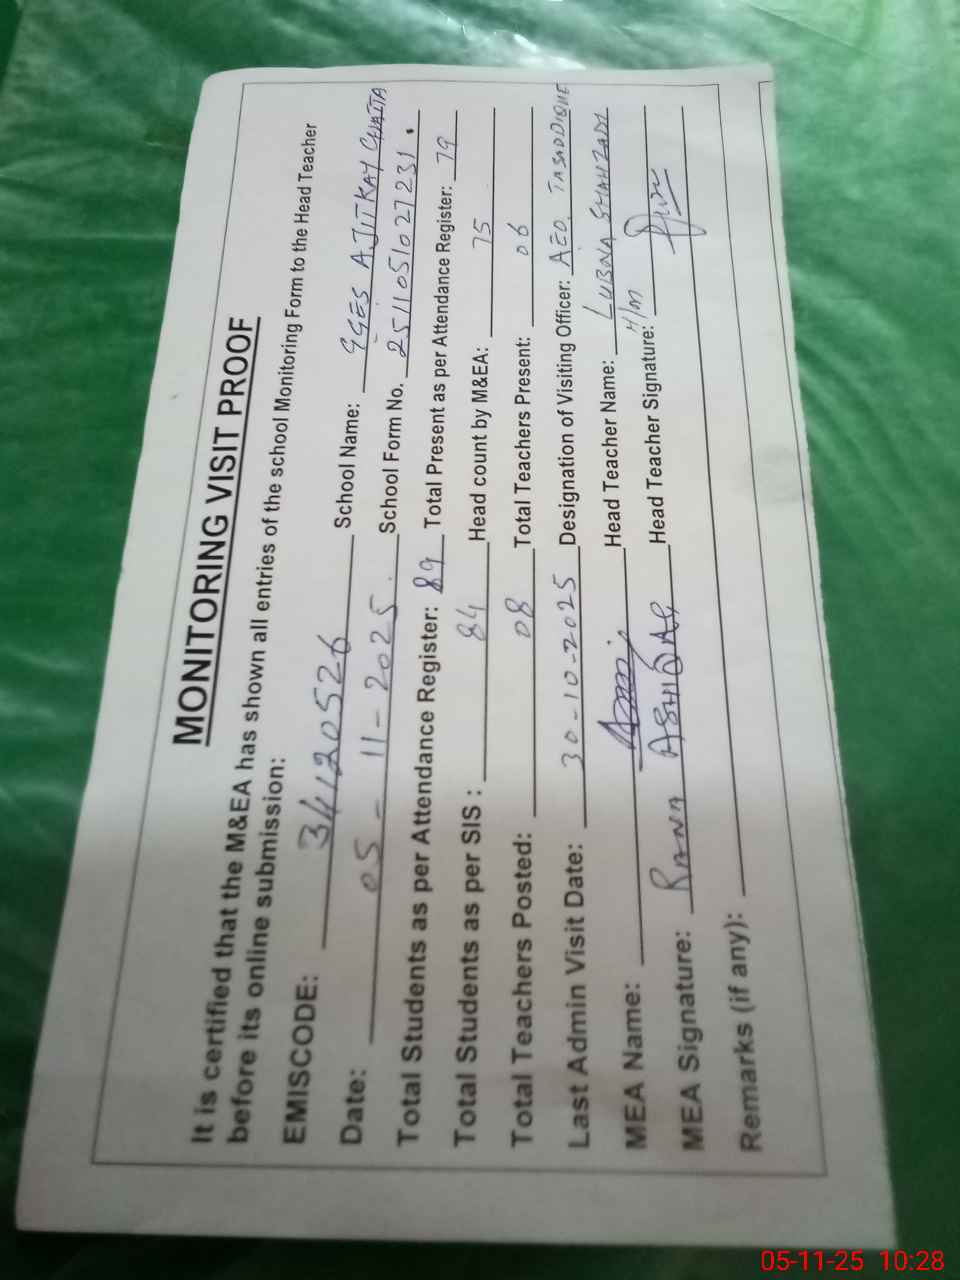 MONITORING VISIT PROOF
It is certified that the M&EA has shown all entries of the school Monitoring Form to the Head Teacher
before its online submission:
EMISCODE: 34120526 School Name: GGES AJITKAY CHATTA
Date: 05-11-2025 School Form No. 251105102 7231.
Total Students as per Attendance Register: 89 Total Present as per Attendance Register: 79
Total Students as per SIS : 84 Head count by M&EA: 75
Total Teachers Posted: 08 Total Teachers Present: 06
Last Admin Visit Date: 30-10-2025 Designation of Visiting Officer: AEO. TASADDIQUE
MEA Name: Head Teacher Name: LUBNA SHAHZADI
MEA Signature: RANA Head Teacher Signature: H/M
Remarks (if any):
05-11-25 10:28